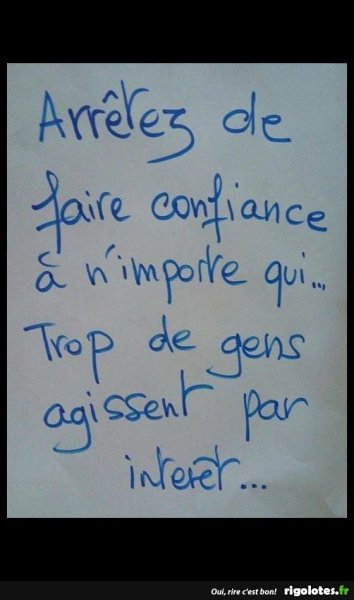 Arrêtez de
faire confiance
à n'importe qui...
Trop de gens
agissent par
interêt...
Oui, rire c'est bon! rigolotes.fr